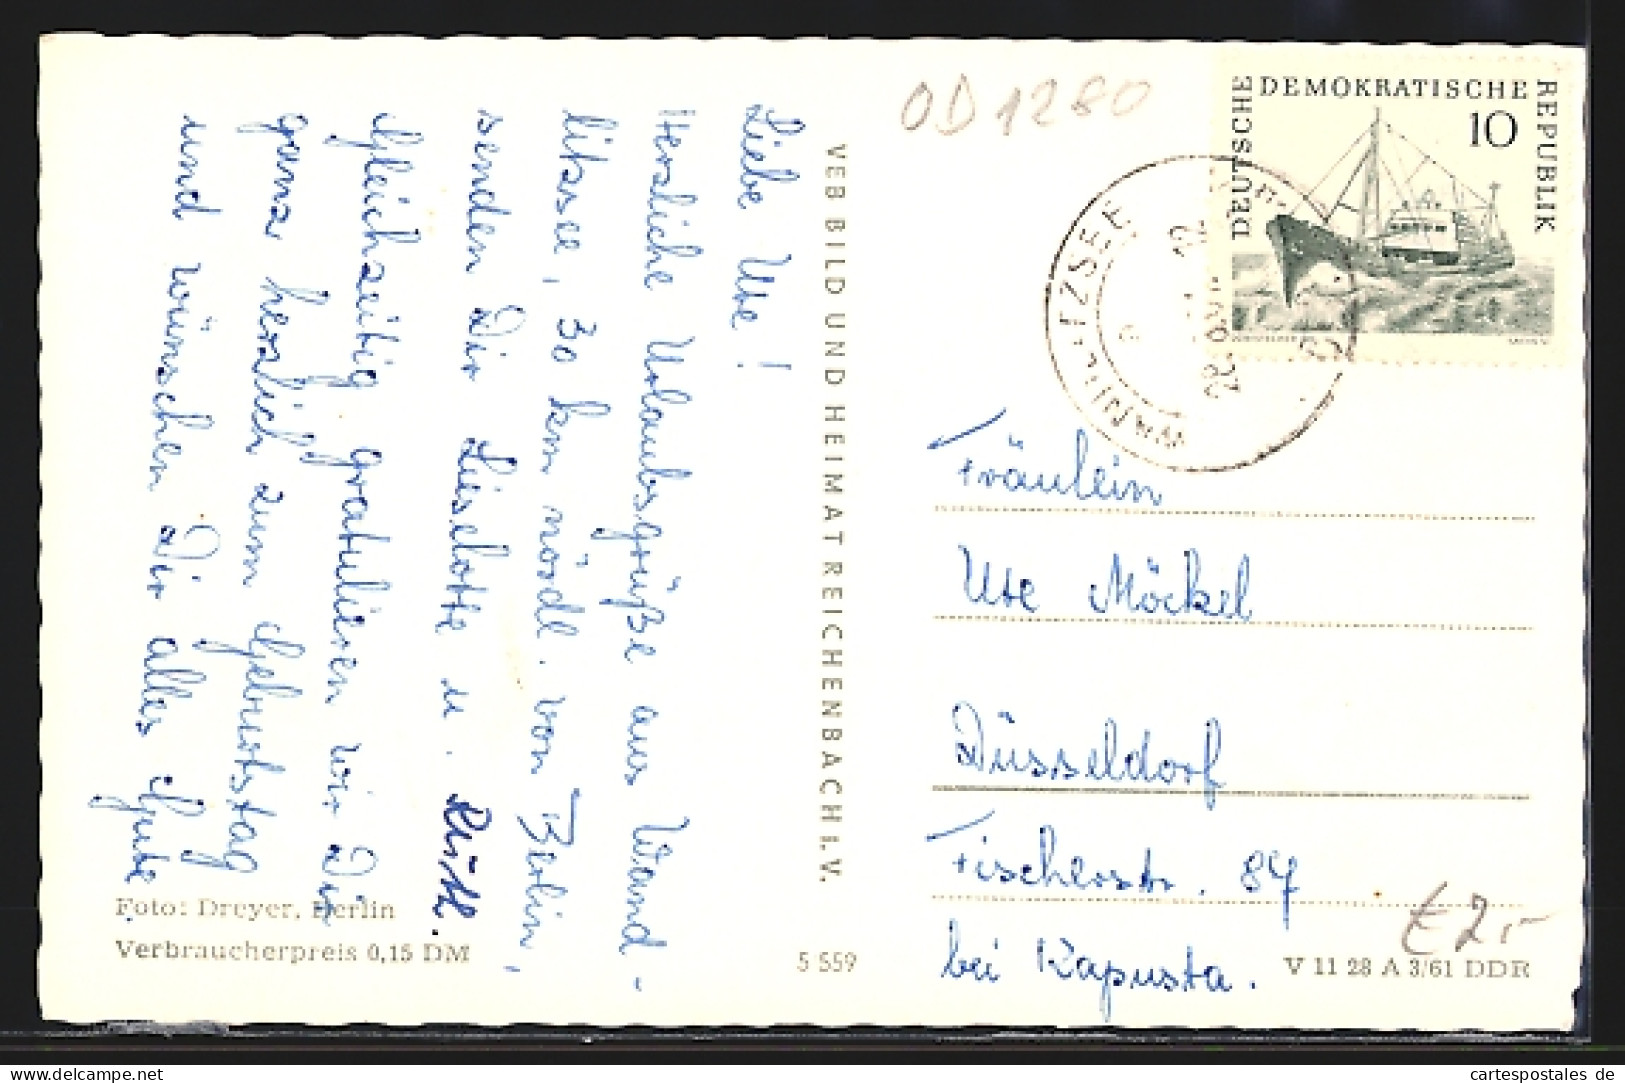 Liebe Ute!
Herzliche Urlaubsgrüße aus Wand-
litzsee, 30 km nördl. von Berlin,
senden Dir Liselotte u. Ruth.
Gleichzeitig gratulieren wir Dir
ganz herzlich zum Geburtstag
und wünschen Dir alles Gute.
Foto: Dreyer, Berlin
Verbraucherpreis 0,15 DM
VEB BILD UND HEIMAT REICHENBACH I. V.
5 559
OD1280
DEUTSCHE DEMOKRATISCHE REPUBLIK
10
WANDLITZSEE
Fräulein
Ute Möckel
Düsseldorf
Fischerstr. 84
bei Kapusta.
€2,-
V 11 28 A 3/61 DDR
www.cartespostales.com
cartespostales de